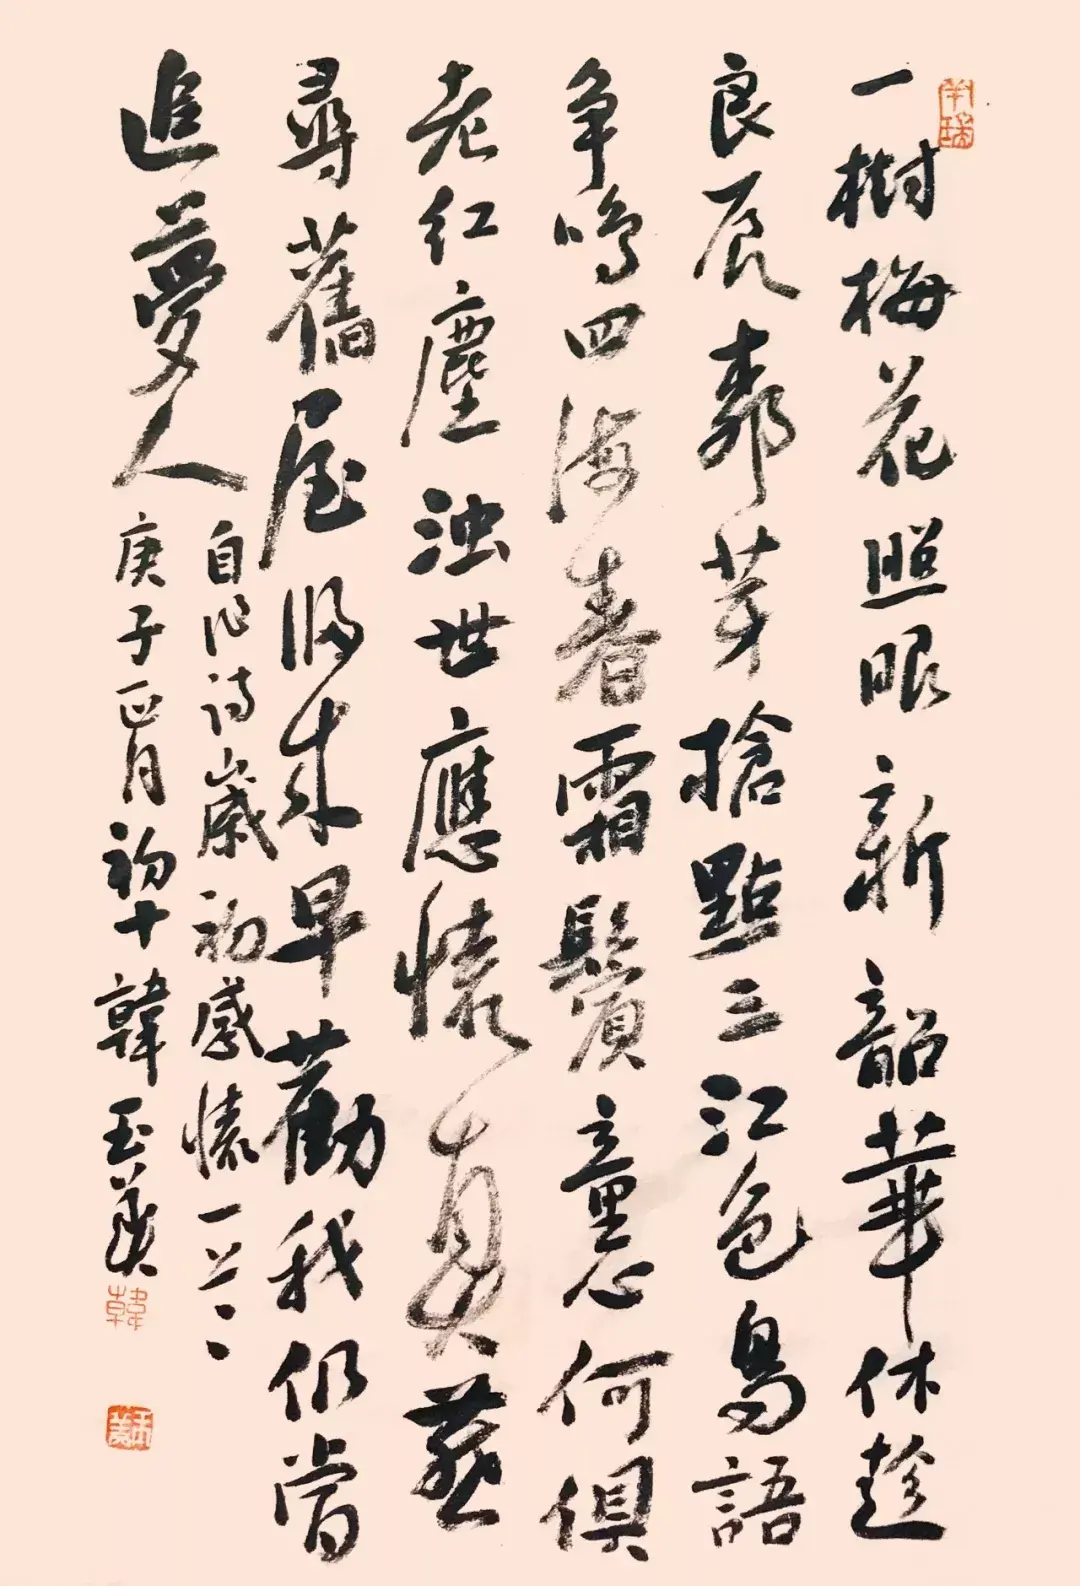 一樹梅花照眼新韶華休趁
良辰芽搶點三江色鳥語
争鳴四海春霜鬢童心何俱
老红塵浊世應懷真燕
尋舊屋歸来早勸我仍當
追夢人
自作詩歲初感懷一首
庚子正月初十韓玉美
韓
玉美